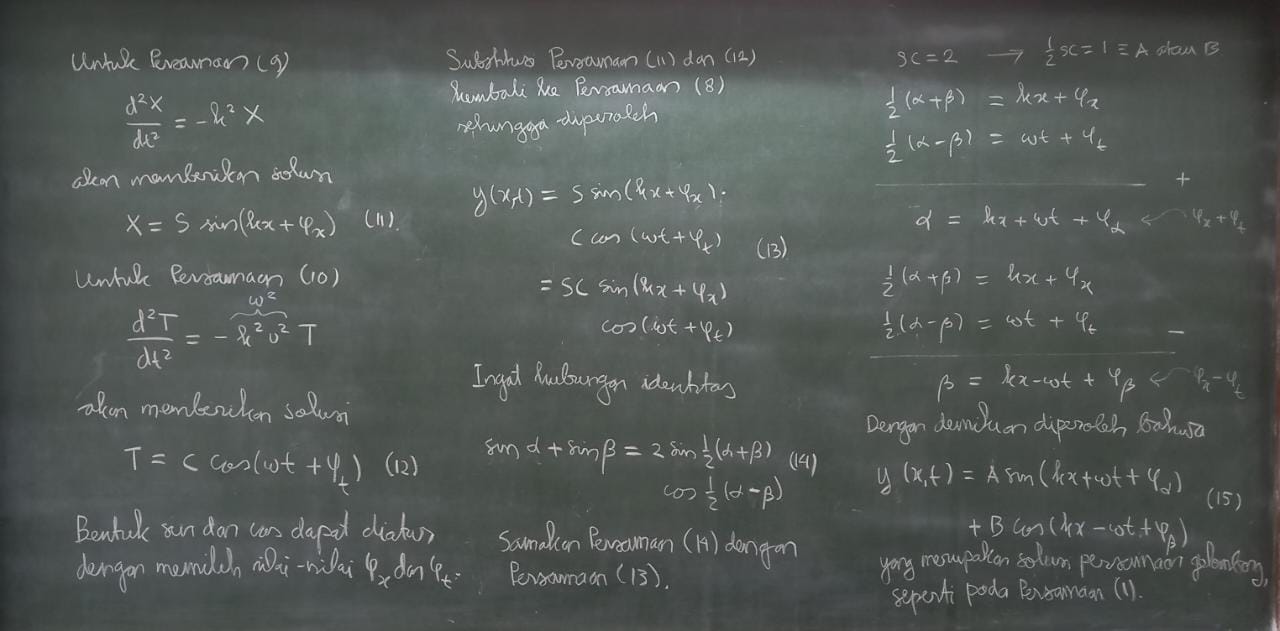 Untuk Persamaan (9)
d²X/dt² = -k² X
akan memberikan solusi
X = S sin(kx + φₓ) (11).
Untuk Persamaan (10)
ω²
d²T/dt² = - k² v² T
akan memberikan solusi
T = C cos(ωt + φₜ) (12)
Bentuk sin dan cos dapat diatur
dengan memilih nilai-nilai φₓ dan φₜ.
Substitusi Persamaan (11) dan (12)
kembali ke Persamaan (8)
sehingga diperoleh
y(x,t) = S sin(kx + φₓ).
C cos (ωt + φₜ) (13)
= SC sin(kx + φₓ)
cos(ωt + φₜ)
Ingat hubungan identitas
sin α + sin β = 2 sin ½(α+β) (14)
cos ½(α-β)
Samakan Persamaan (14) dengan
Persamaan (13).
SC = 2 → ½SC = 1 ≡ A atau B
½(α+β) = kx + φₓ
½(α-β) = ωt + φₜ
+
α = kx + ωt + φ_α ← φₓ + φₜ
½(α+β) = kx + φₓ
½(α-β) = ωt + φₜ
-
β = kx - ωt + φᵦ ← φₓ - φₜ
Dengan demikian diperoleh bahwa
y (x,t) = A sin(kx + ωt + φ_α) (15)
+ B cos(kx - ωt + φᵦ)
yang merupakan solusi persamaan gelombang,
seperti pada Persamaan (1).